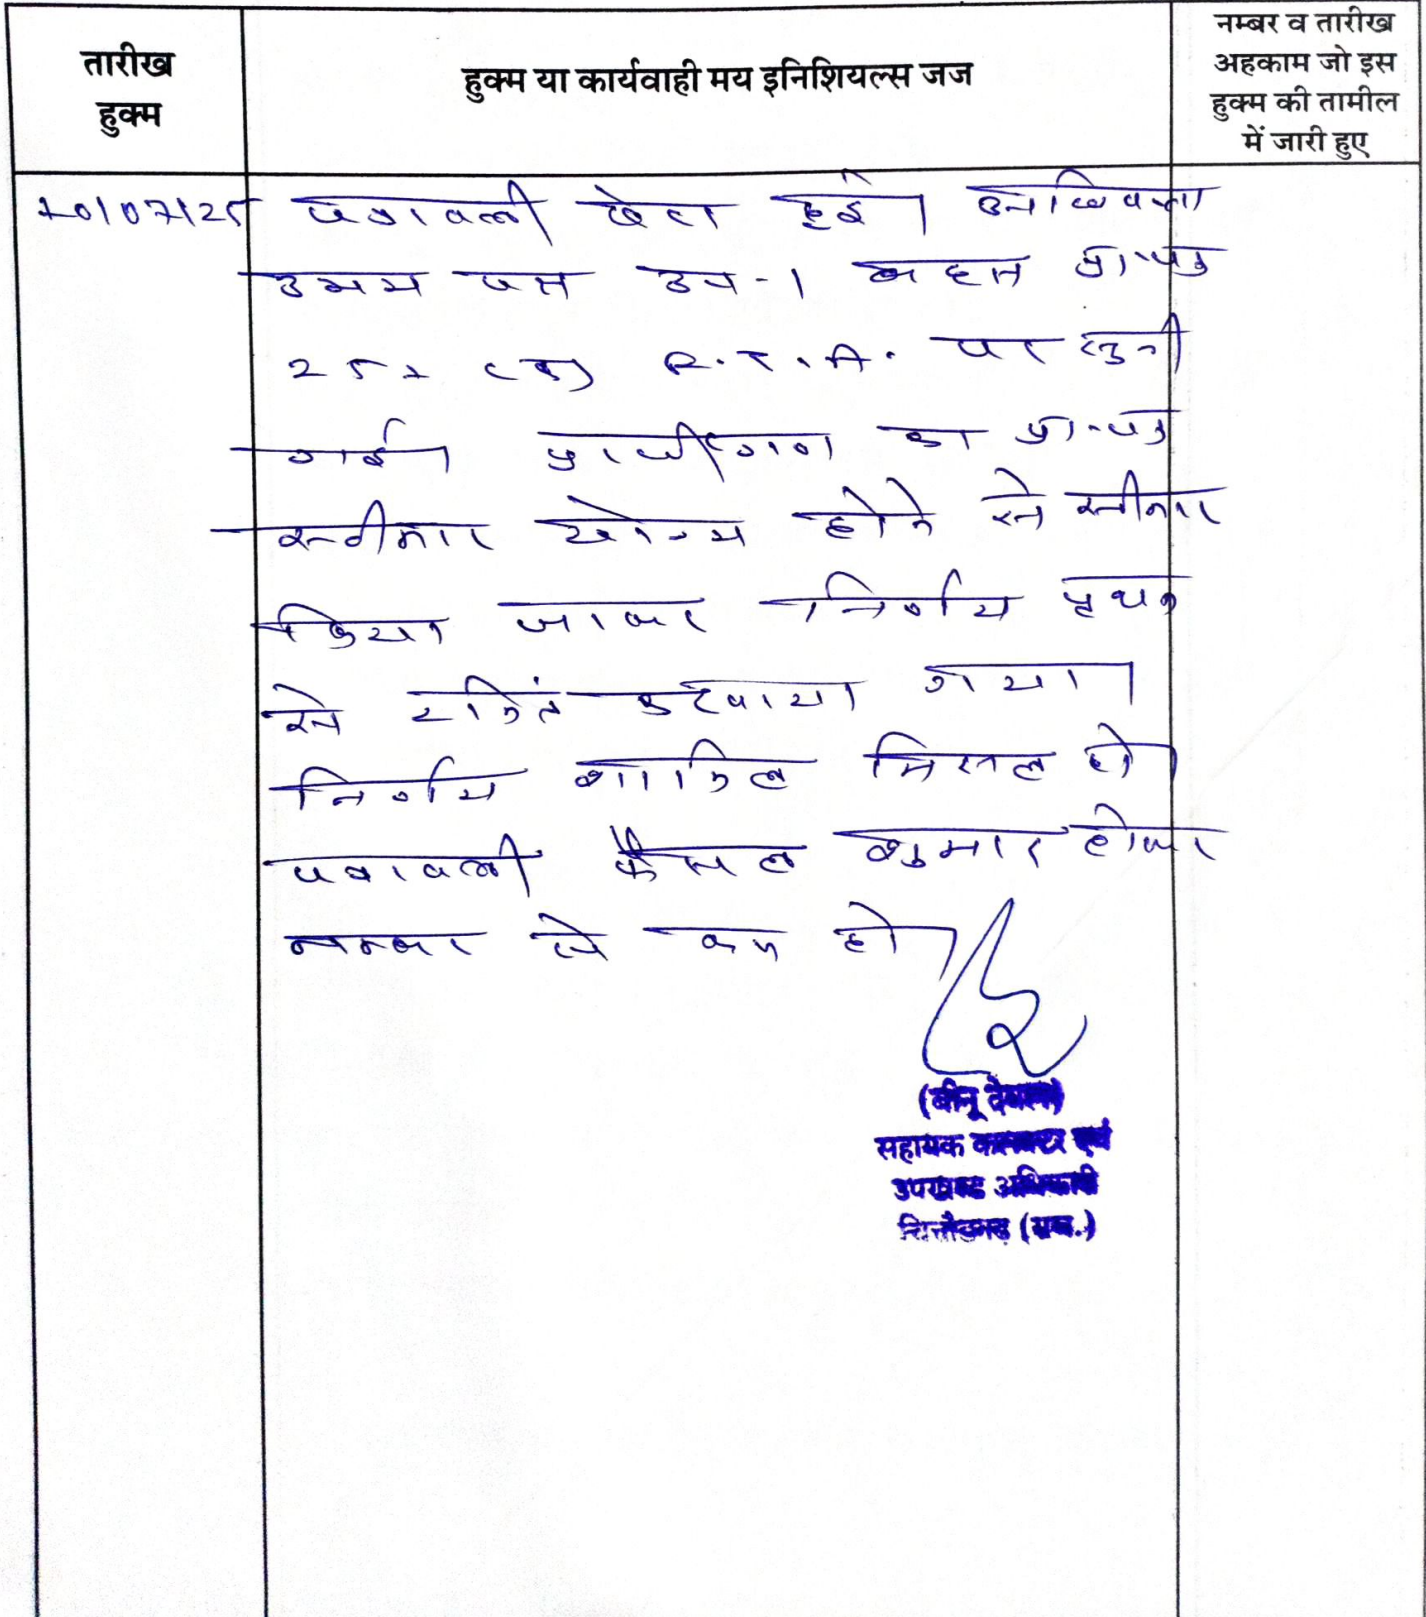 तारीख
हुक्म
हुक्म या कार्यवाही मय इनिशियल्स जज
नम्बर व तारीख
अहकाम जो इस
हुक्म की तामील
में जारी हुए
10/07/25 पत्रावली पेश हुई। अधिवक्ता
उभय पक्ष उप-। बहस प्रा-पत्र
251 (ए) R.T.A. पर सुनी
गई। प्रार्थीगण का प्रा-पत्र
स्वीकार योग्य होने से स्वीकार
किया जाकर निर्णय पृथक
से टंकित करवाया गया।
निर्णय शामिल मिसल हो।
पत्रावली फैसल शुमार होकर
नम्बर से कम हो।
(बीनू देवल)
सहायक कलक्टर एवं
उपखण्ड अधिकारी
चित्तौड़गढ़ (राज.)